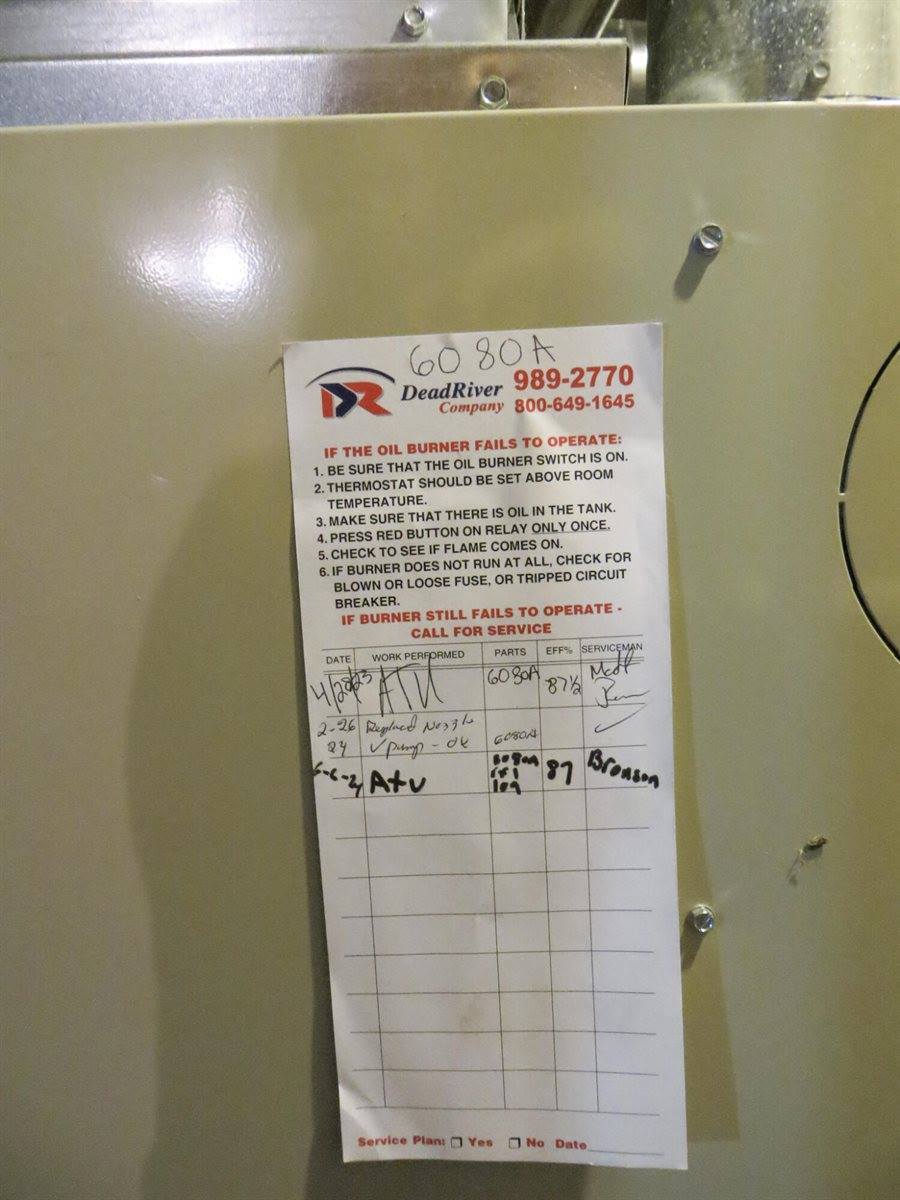 6080A
DR DeadRiver Company 989-2770
800-649-1645
IF THE OIL BURNER FAILS TO OPERATE:
1. BE SURE THAT THE OIL BURNER SWITCH IS ON.
2. THERMOSTAT SHOULD BE SET ABOVE ROOM
TEMPERATURE.
3. MAKE SURE THAT THERE IS OIL IN THE TANK.
4. PRESS RED BUTTON ON RELAY ONLY ONCE.
5. CHECK TO SEE IF FLAME COMES ON.
6. IF BURNER DOES NOT RUN AT ALL, CHECK FOR
BLOWN OR LOOSE FUSE, OR TRIPPED CIRCUIT
BREAKER.
IF BURNER STILL FAILS TO OPERATE -
CALL FOR SERVICE
DATE WORK PERFORMED PARTS EFF% SERVICEMAN
4/28/23 ATU 6080A 87½ Matt
2-26 Replaced Nozzle
24 ✓ pump - ok 6080A
Atu 6080A 87 Bronson
Service Plan: Yes No Date